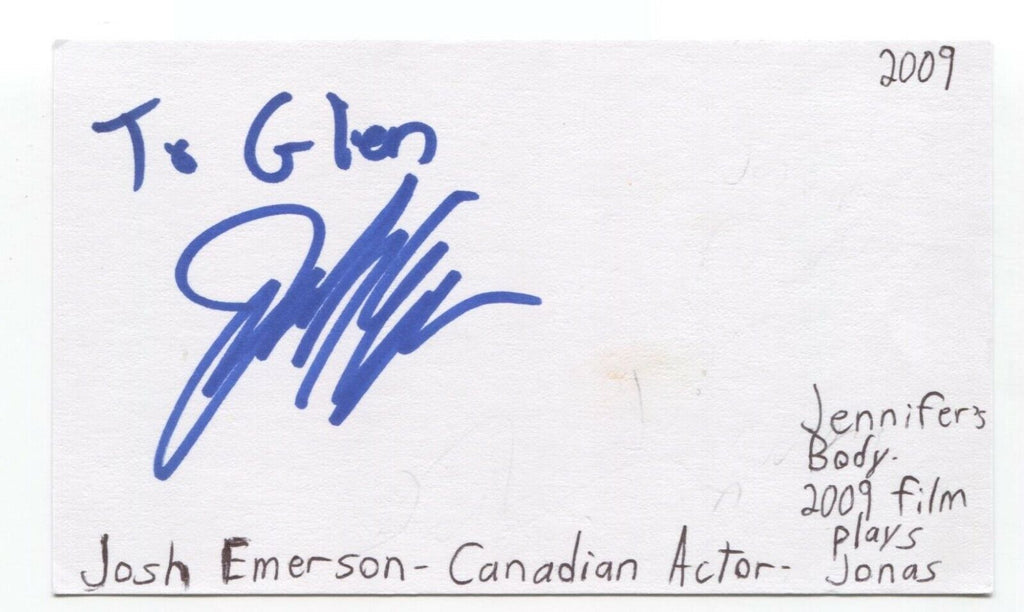 2009
To Glen
Jennifer's
Body-
2009 film
plays
Josh Emerson - Canadian Actor - Jonas